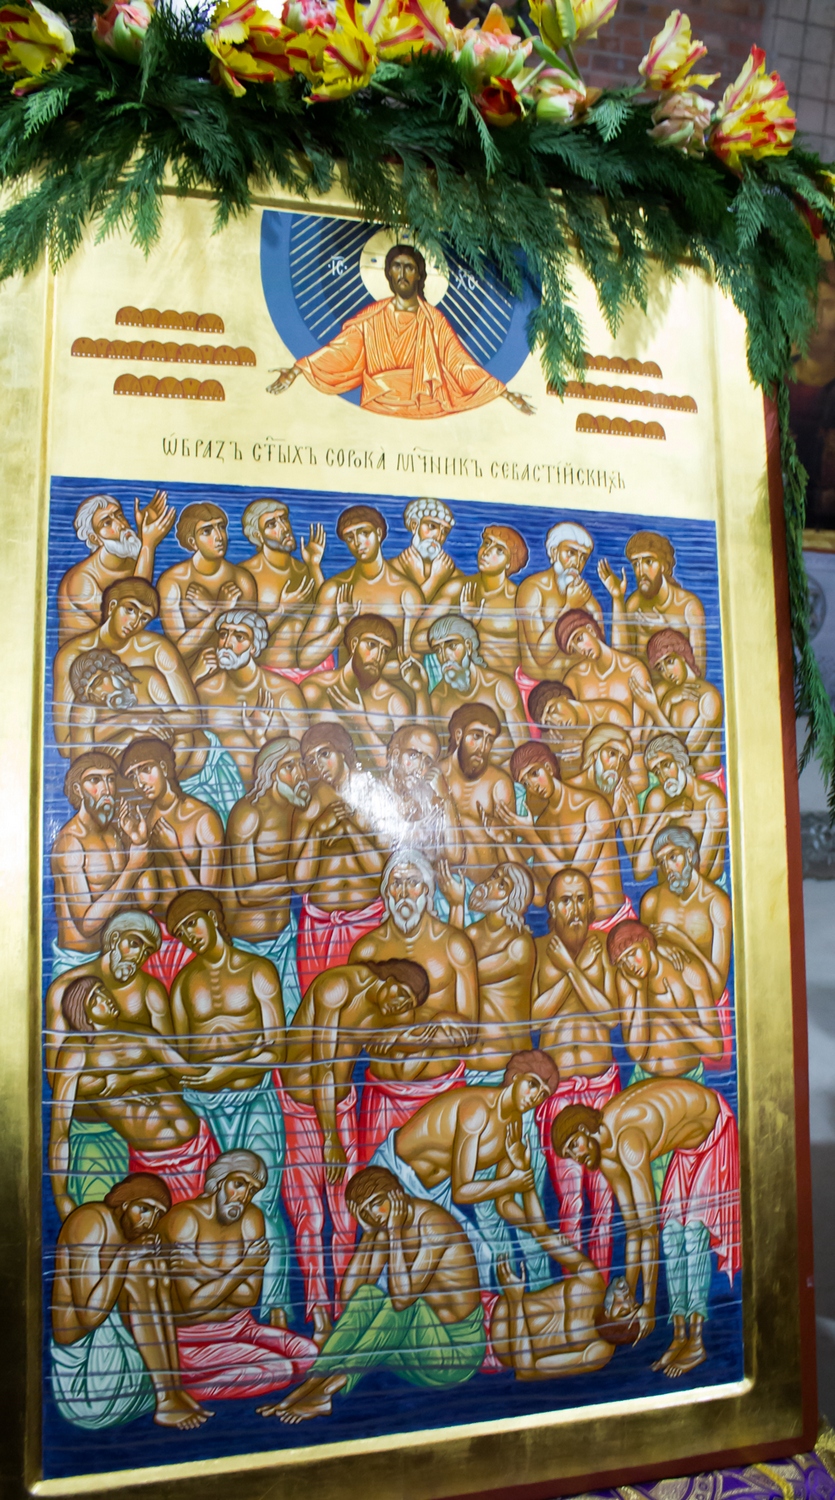 І҃С Х҃С
Ѡ́БРАZЪ СТ҃ЫХЪ СОРОКА̀ МЧ҃НИКЪ СЕВАСТІ́ЙСКИХЪ